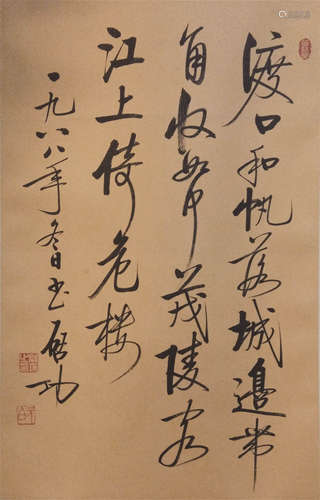 渡口和帆落城邊帶
角收如何茂陵客
江上倚危楼
一九八八年冬日书 启功